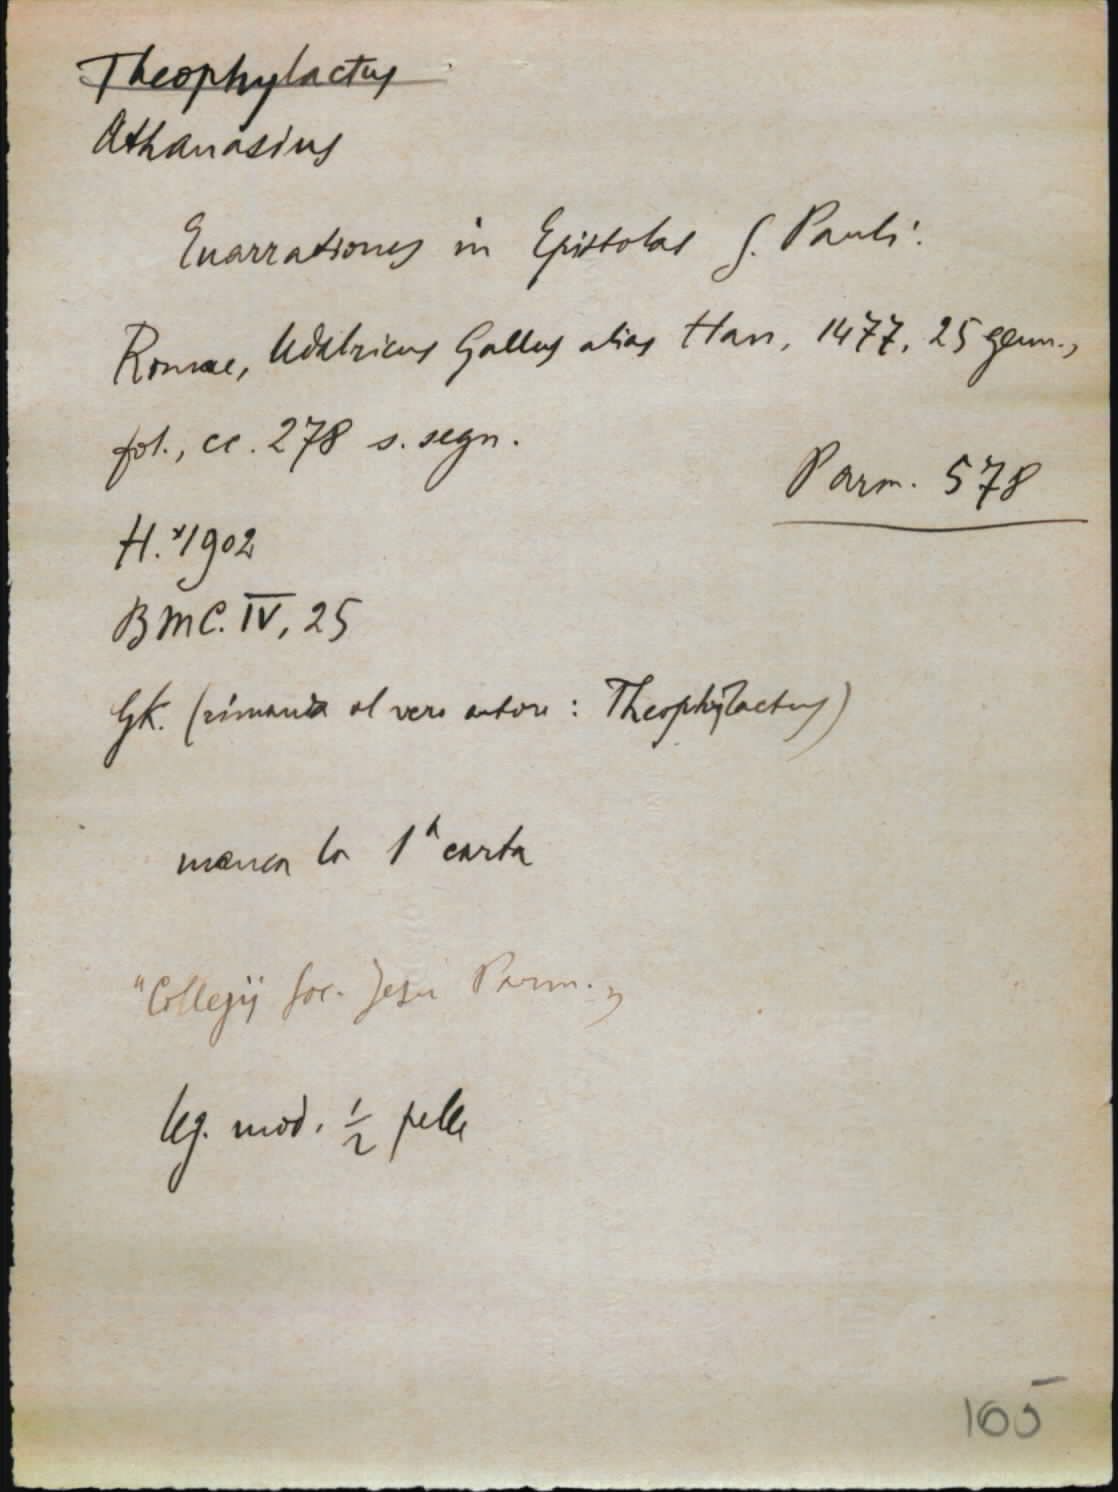 Theophylactus
Athanasius
Enarrationes in Epistolas S. Pauli.
Romae, Udalricus Gallus alias Han, 1477, 25 genn.,
fol., cc. 278 s. segn.
Parm. 578
H. *1902
BMC. IV, 25
GK. (rimanda al vero autore: Theophylactus)
manca la 1ª carta
"Collegij Soc. Jesu Parm."
leg. mod. 1/2 pelle
165